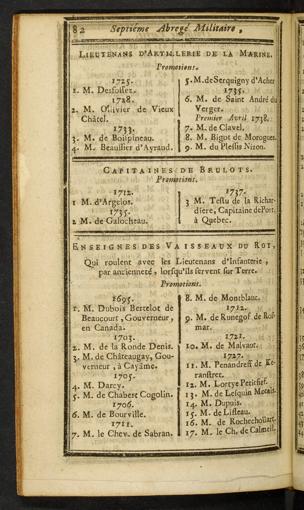 82 Septiéme Abregé Militaire,
LIEUTENANS D'ARTILLERIE DE LA MARINE.
Promotions.
1725.
1. M. Desfossez.
1728.
2. M. Ollivier de Vieux
Châtel.
1733.
3. M. de Boispineau.
4. M. Beaussier d'Ayraud.
5. M. de Serquigny d'Acher
1735.
6. M. de Saint André du
Verger.
Premier Avril 1738.
7. M. de Clavel.
8. M. Bigot de Morogues.
9. M. du Plessis Nizon.
CAPITAINES DE BRULOTS.
Promotions.
1712.
1 M. d'Argelos.
1735.
2 M. de Galocheau.
1737.
3 M. Testu de la Richar-
diere, Capitaine de Port
à Quebec.
ENSEIGNES DES VAISSEAUX DU ROY,
Qui roulent avec les Lieutenans d'Infanterie,
par ancienneté, lorsqu'ils servent sur Terre.
Promotions.
1695.
1. M. Dubois Bertelot de
Beaucourt, Gouverneur,
en Canada.
1703.
2. M. de la Ronde Denis.
3. M. de Châteaugay, Gou-
verneur, à Cayâme.
1705.
4. M. Darcy.
5. M. de Chabert Cogolin.
1706.
6. M. de Bourville.
1711.
7. M. le Chev. de Sabran.
8. M. de Montblanc.
1712.
9. M. de Runegof de Ros-
mar.
1721.
10. M. de Malvaut.
1727.
11. M. Penandreff de Ke-
ranstret.
12. M. Lortye Petitfief.
13. M. de Lesquin
14. M. Dupuis.
15. M. de Lisleau.
16. M. de Rochechouart.
17. M. le Ch. de